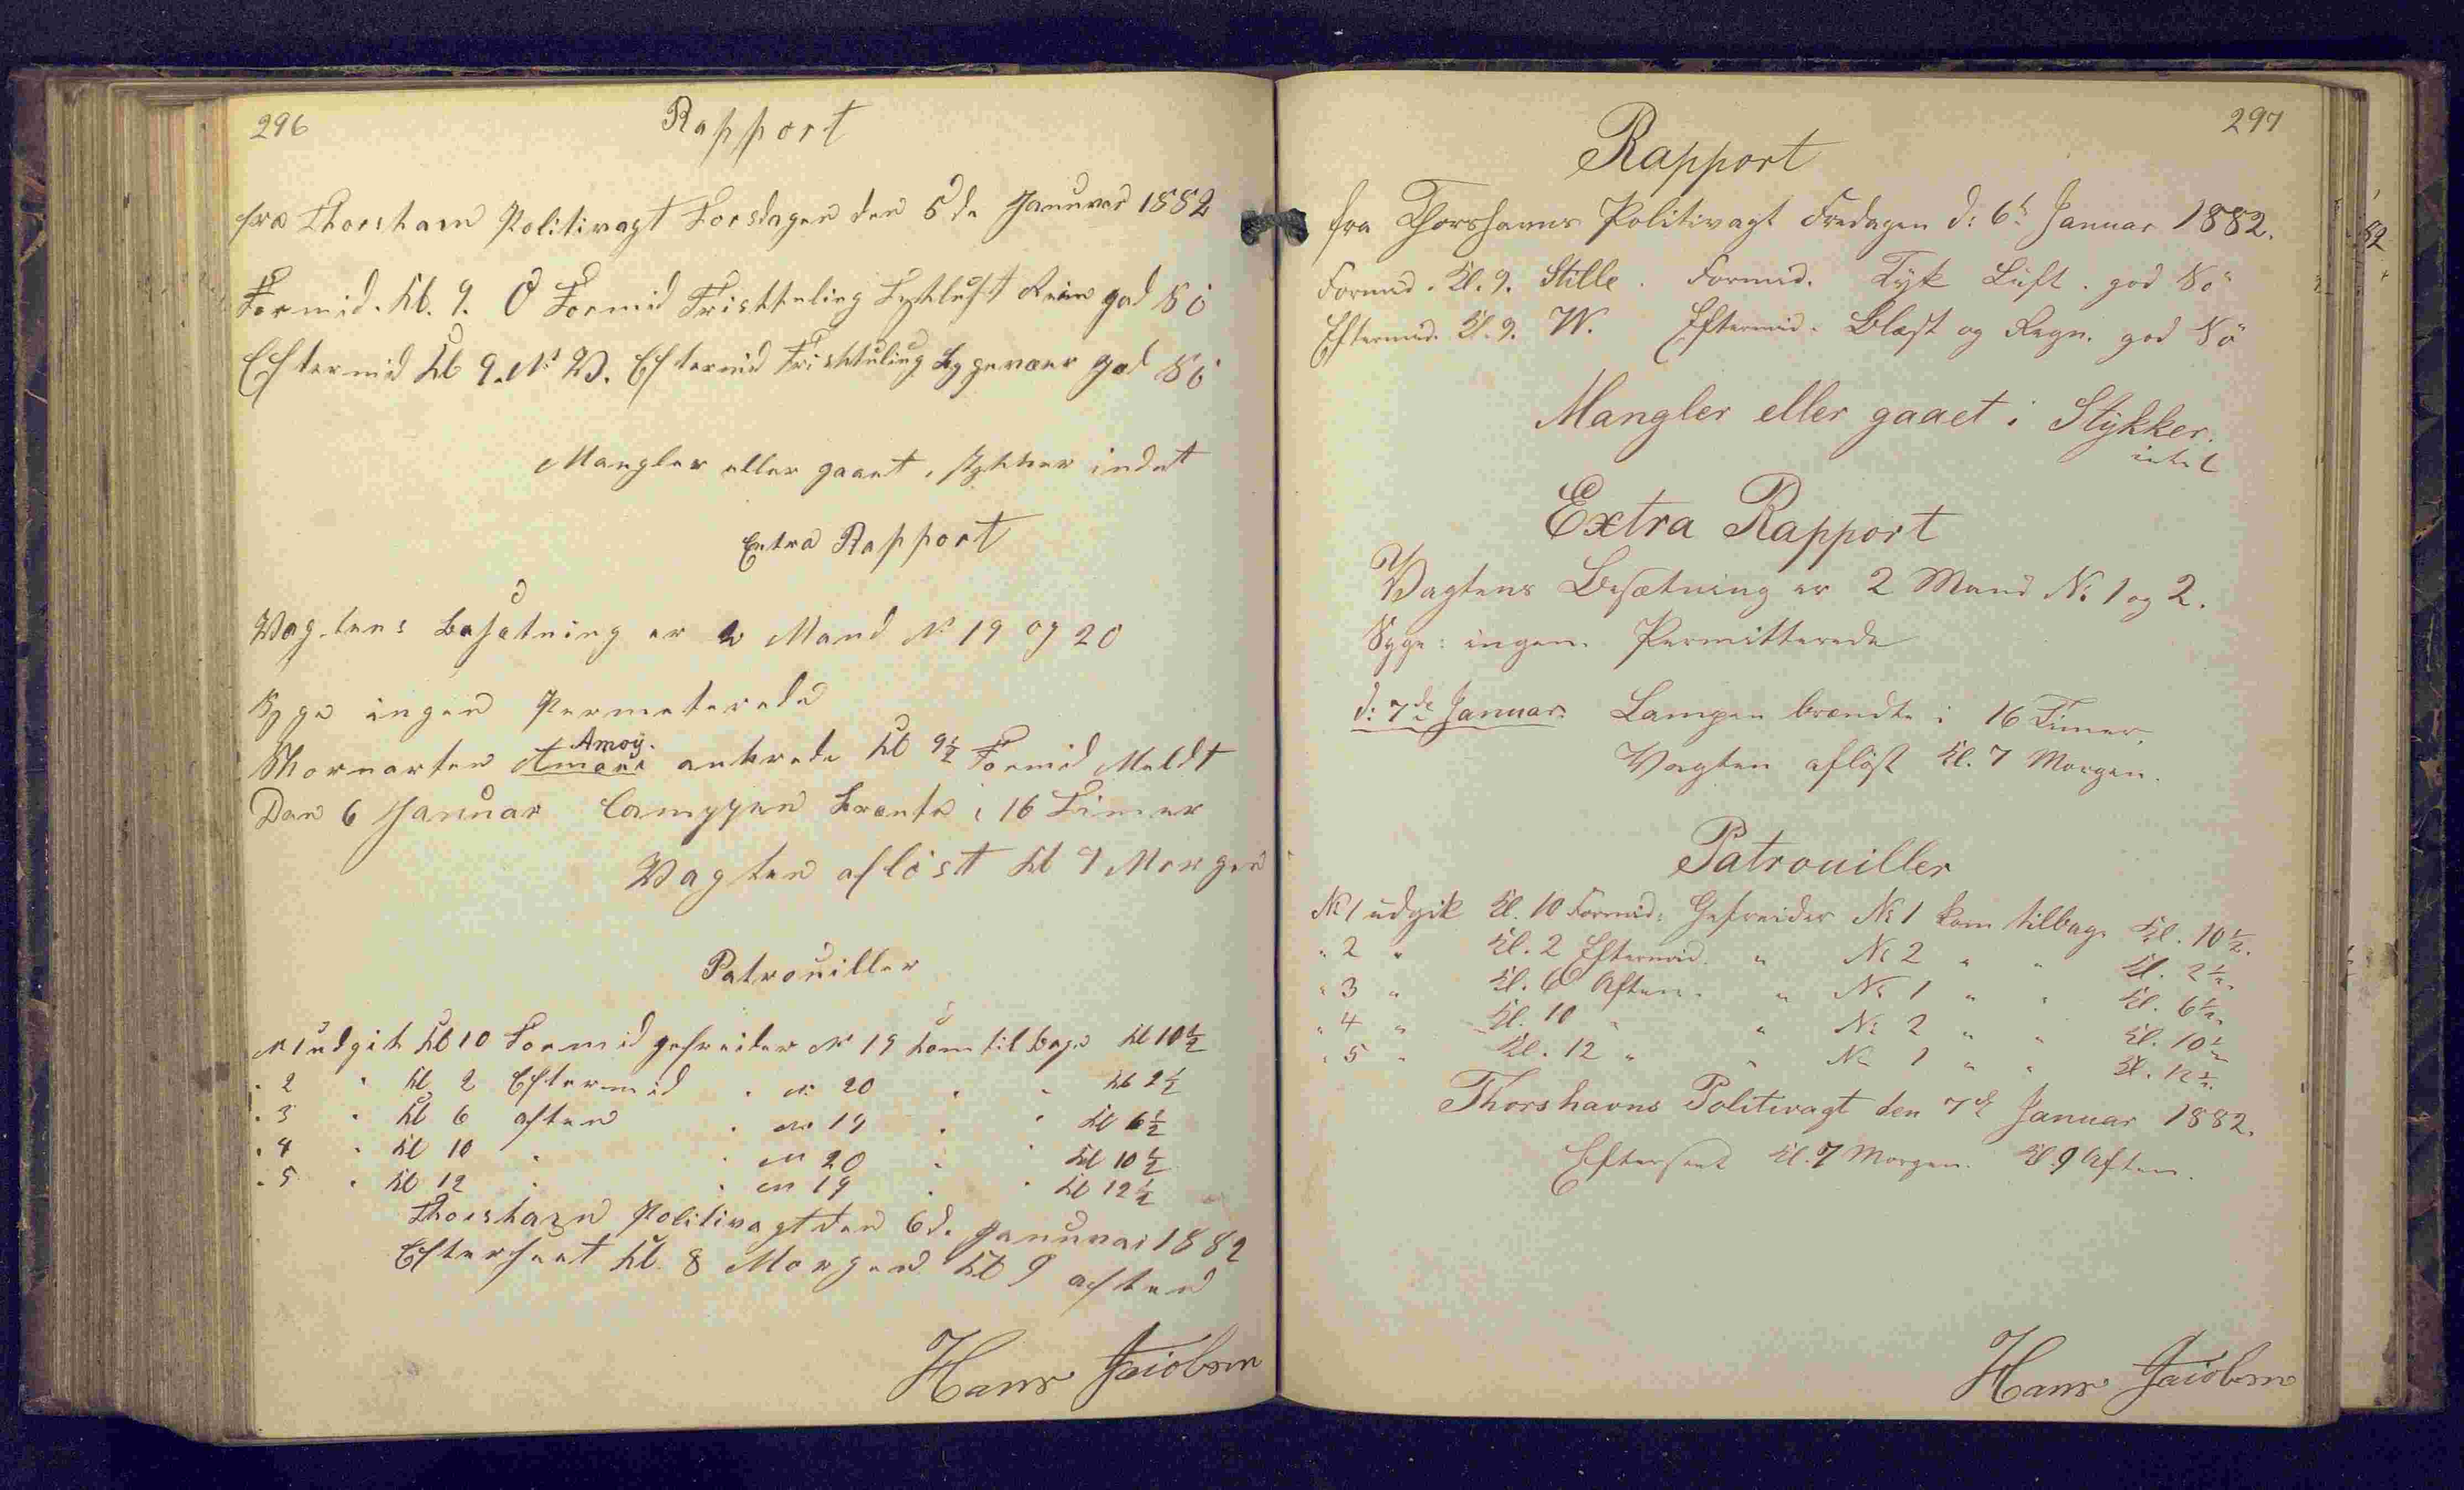 296
Rapport
fra Thorshavn Politivagt Torsdagen den 5de Januvar 1882
Formid. Kl. 9. O Formid Friskkuling Tykluft Rein god Sö
Eftermid Kl 9. N W. Eftermid Friskkuling Bygevær god Sö
Mangler eller gaaet i stykker indet
Extra Rapport
Vagtens besætning er 2 Mand No 19 og 20
Syge ingen Permeterede
Amoy.
Skonnarten ankrede Kl 9½ Formid Meldt
Den 6 Januar Lamppen brænte i 16 Timer
Vagten aflöst Kl 7 Morgen
Patrouiller
N 1 udgik Kl 10 Formid gefreider No 19 kom tilbage Kl 10½
" 2 " Kl 2 Eftermid " N. 20 " " Kl 2½
" 3 " Kl 6 aften " No 19 " " Kl 6½
" 4 " Kl 10 " " N 20 " " Kl 10½
" 5 " Kl 12 " " N 19 " " Kl 12½
Thorshavn Politivagt den 6de Janunar 1882
Efterseet Kl. 8 Morgen Kl 9 aften
Hans Jacobsen
297
Rapport
fra Thorshavns Politivagt Fredagen d: 6te Januar 1882.
Formid. Kl. 9. Stille. Formid. Tyk Luft. god Sö
Eftermid. Kl. 9. W. Eftermid. Blæst og Regn. god Sö
Mangler eller gaaet i Stykker.
intet
Extra Rapport
Vagtens Besætning er 2 Mand No 1 og 2.
Syge: ingen Permitterede
d: 7de Januar. Lampen brændte i 16 Timer.
Vagten aflöst Kl. 7 Morgen.
Patrouiller
No 1 udgik Kl. 10 Formid: Gefreider No 1 kom tilbage Kl. 10½.
" 2 " Kl. 2 Eftermid. " No 2 " " Kl. 2½.
" 3 " Kl. 6 Aften. " No 1 " " Kl. 6½.
" 4 " Kl. 10 " " No 2 " " Kl. 10½
" 5 " Kl. 12 " " No 1 " " Kl. 12½.
Thorshavns Politivagt den 7de Januar 1882.
Efterseet Kl. 7 Morgen. Kl. 9 Aften.
Hans Jacobsen
82